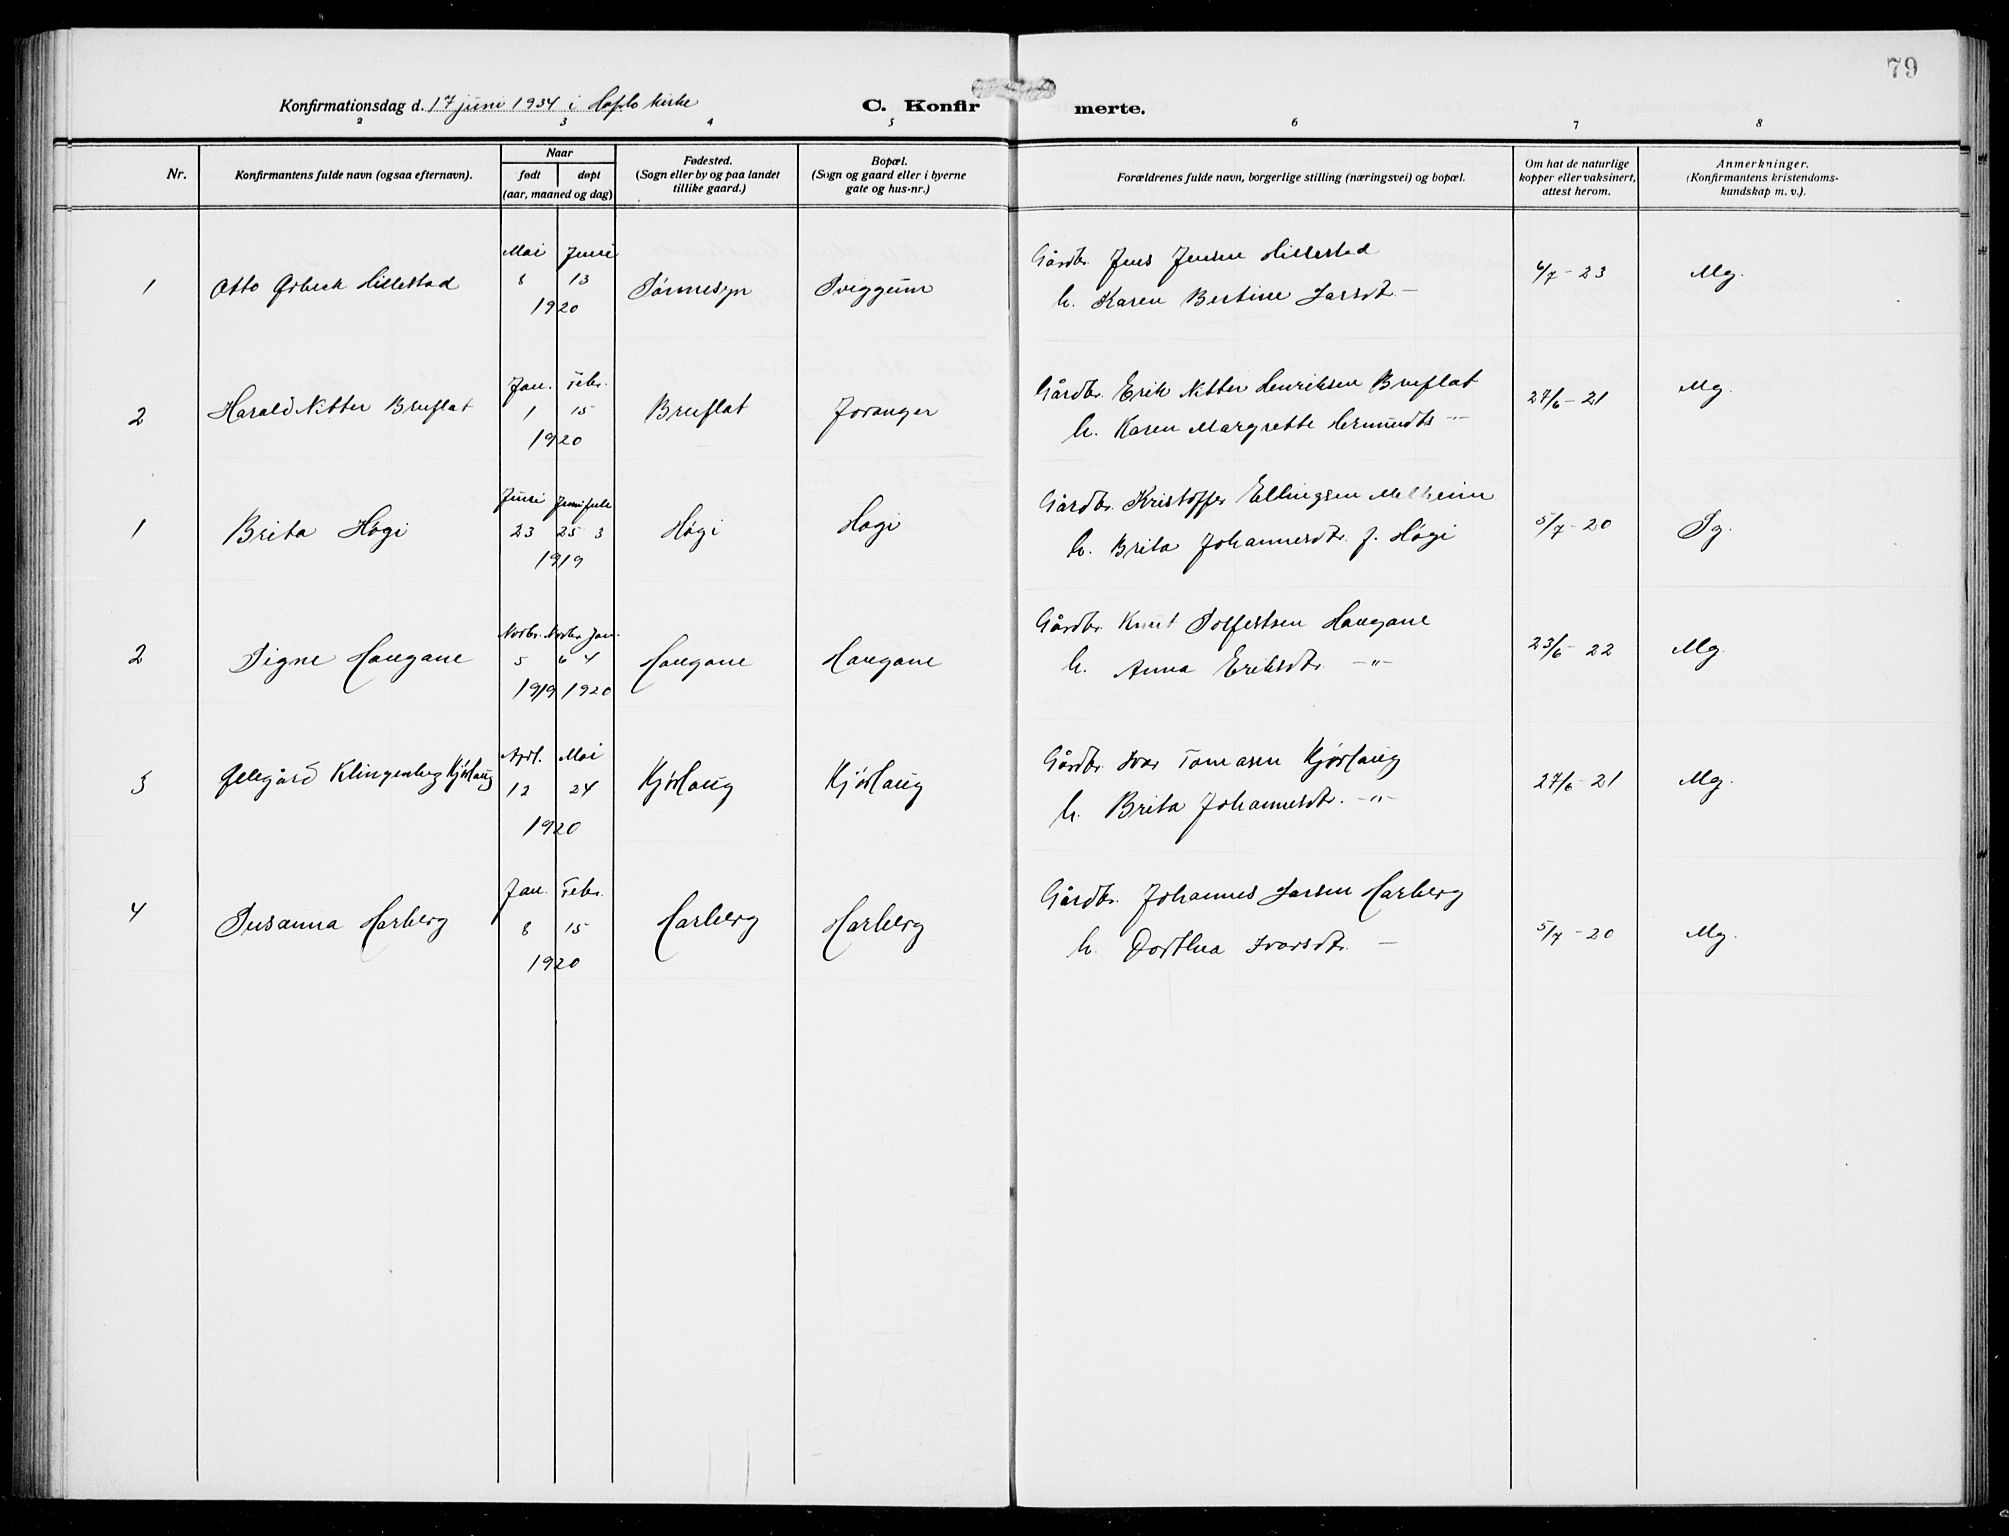 79
Konfirmationsdag d. 17 juni 1934 i Hafslo kirke
C. Konfirmerte.
2 3 4 5 6 7 8
Nr.
Konfirmantens fulde navn (ogsaa efternavn).
Naar
født døpt
(aar, maaned og dag)
Fødested.
(Sogn eller by og paa landet
tillike gaard.)
Bopæl.
(Sogn og gaard eller i byerne
gate og hus-nr.)
Forældrenes fulde navn, borgerlige stilling (næringsvei) og bopæl.
Om hat de naturlige
kopper eller vaksinert,
attest herom.
Anmerkninger.
(Konfirmantens kristendoms-
kundskap m. v.).
Mai Juni
1 Otto Hillestad 8 13 Sørnesyn Sviggum
1920
Gårdbr. Jens Jensen Hillestad
h. Karen Bertine Larsdt. —
6/7 - 23 Mg.
Jan. Febr.
2 Harald Nitter Bruflat 1 15 Bruflat Joranger
1920
Gårdbr. Erik Nitter Henriksen Bruflat
h. Karen Margrethe Hermundts -"-
27/6 - 21 Mg.
Juni Juni Juli
1 Brita Høgi 23 25 3 Høgi Høgi
1919
Gårdbr. Kristoffer Ellingsen Melheim
h. Brita Johannesdtr. f. Høgi
5/7 - 20 Sg.
Novbr. Novbr. Jan.
2 Signe Haugane 5 6 4 Haugane Haugane
1919 1920
Gårdbr. Knut Solfestsen Haugane
h. Anna Eriksdtr. -"-
23/6 - 22 Mg.
Apr. Mai
3 Klingenberg Kjørlaug 12 24 Kjørlaug Kjørlaug
1920
Gårdbr. Ivar Tomasen Kjørlaug
h. Brita Johannesdtr. -"-
27/6 - 21 Mg.
Jan. Febr.
4 Susanna Harberg 8 15 Harberg Harberg
1920
Gårdbr. Johannes Larsen Harberg
h. Dorthea Ivarsdtr. —
5/7 - 20 Mg.